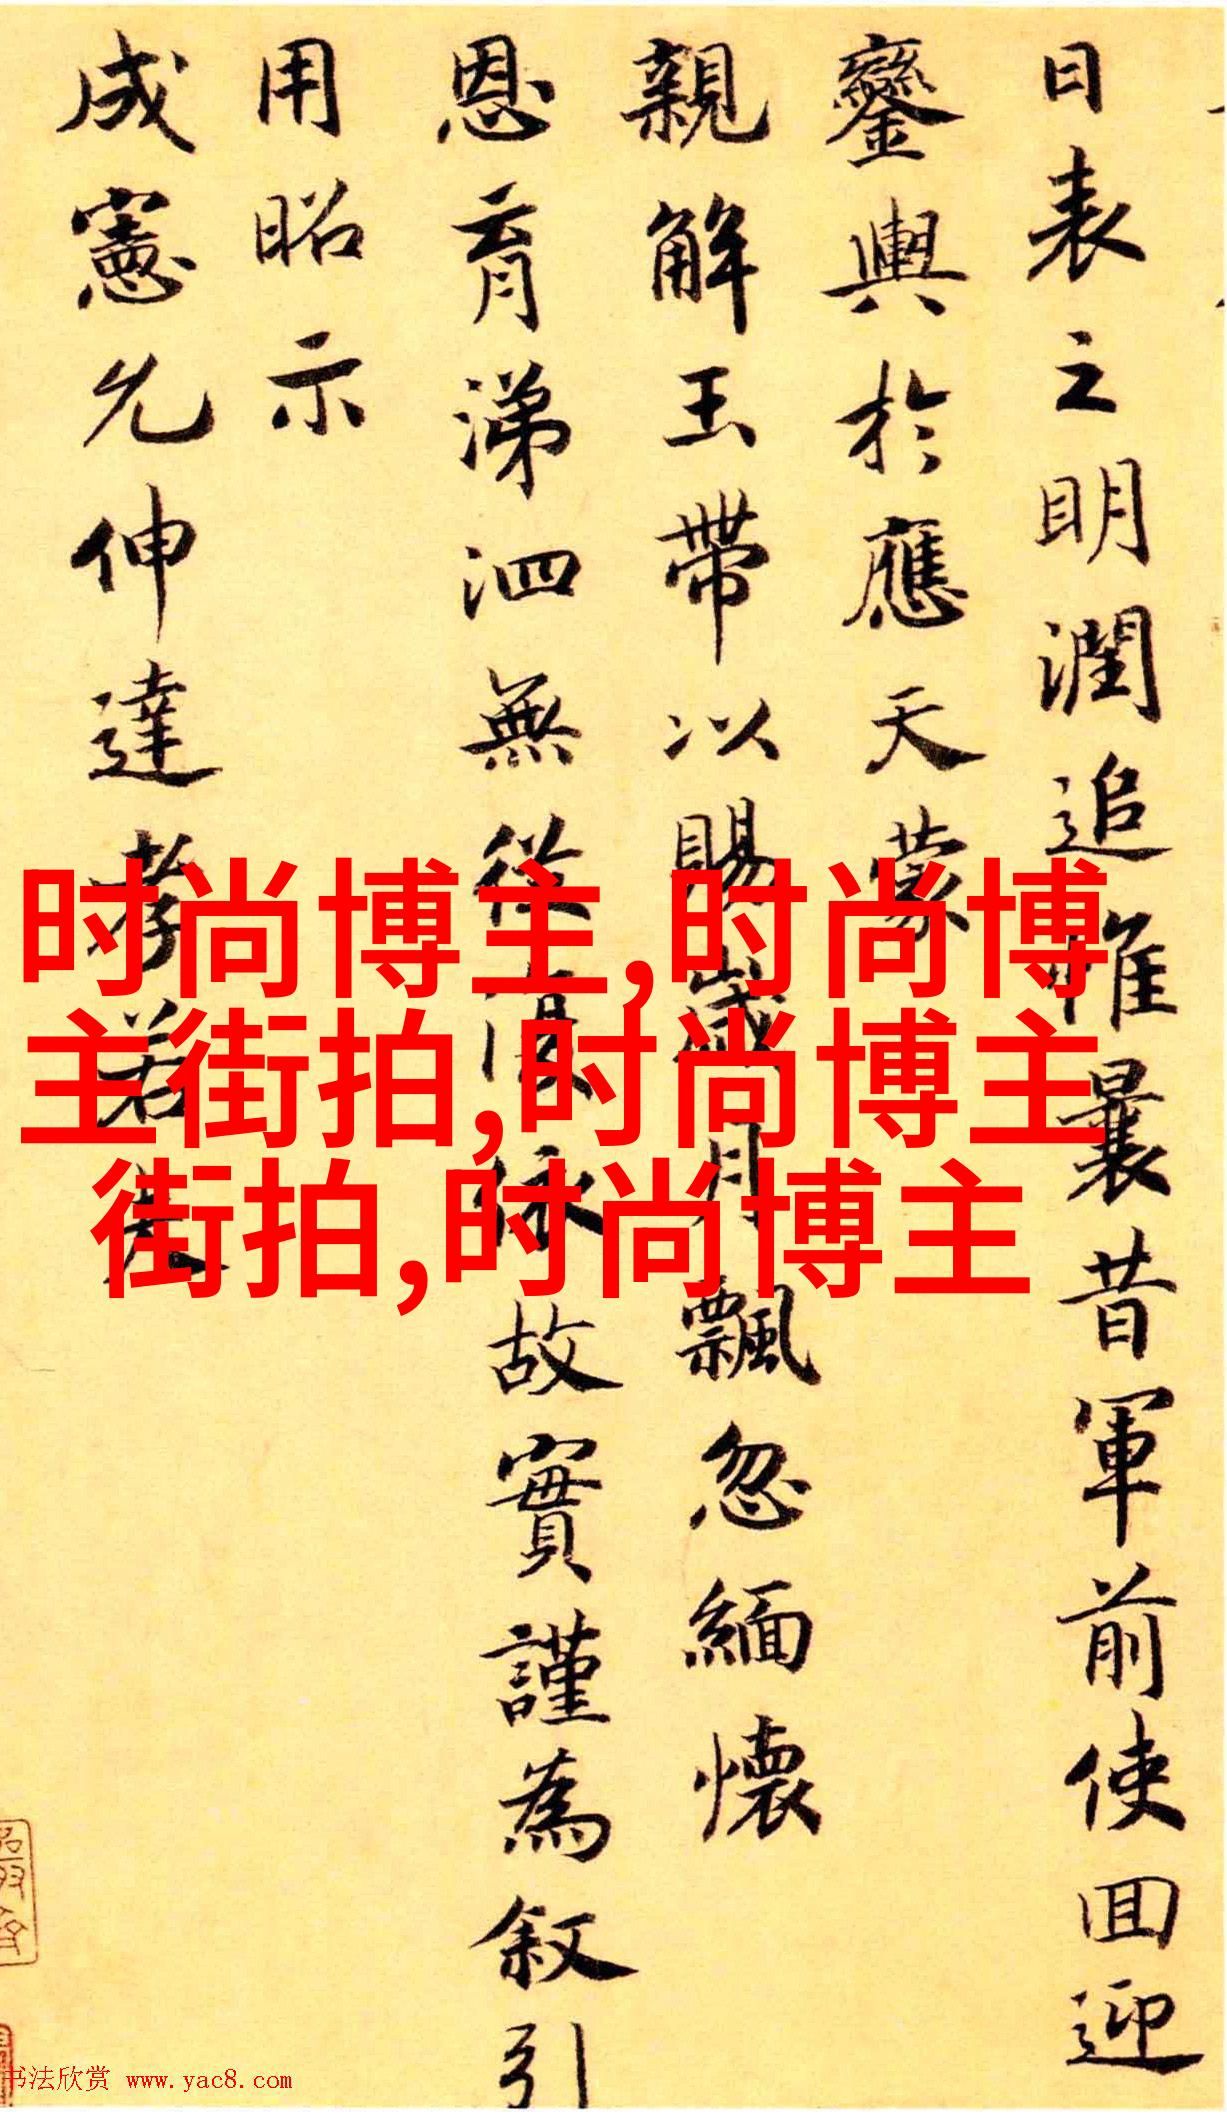 日表之明潤追惟曩昔軍前使回迎
鑾輿於應天蒙
親解玉帶以賜歲月飄忽緬懷
恩育涕泗無從復依故實謹為叙引
用昭示
成憲允伸達孝若夫
时尚博主,时尚博
主街拍,时尚博主
街拍,时尚博主
书法欣赏 www.yac8.com